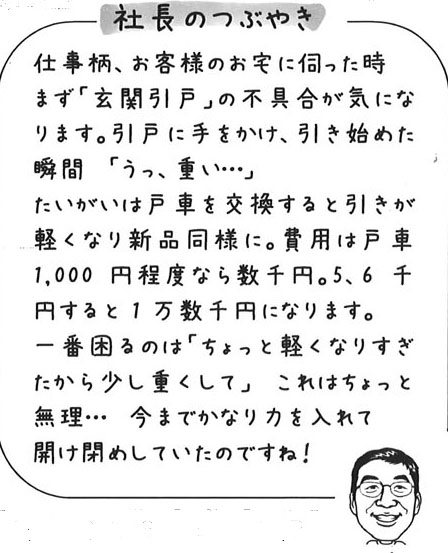 社長のつぶやき
仕事柄、お客様のお宅に伺った時
まず「玄関引戸」の不具合が気にな
ります。引戸に手をかけ、引き始めた
瞬間 「うっ、重い…」
たいがいは戸車を交換すると引きが
軽くなり新品同様に。費用は戸車
1,000 円程度なら数千円。5、6 千
円すると 1 万数千円になります。
一番困るのは「ちょっと軽くなりすぎ
たから少し重くして」 これはちょっと
無理… 今までかなり力を入れて
開け閉めしていたのですね!